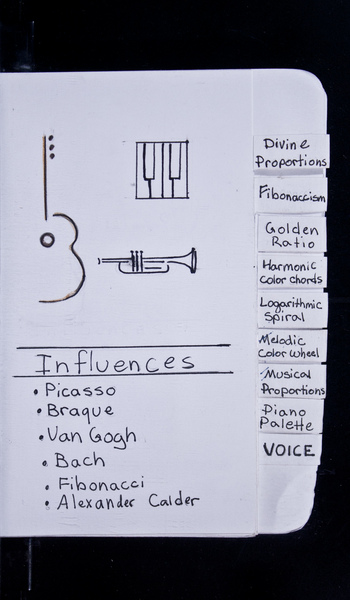 Divine
Proportions
Fibonaccism
Golden
Ratio
Harmonic
Color chords
Logarithmic
Spiral
Melodic
Color wheel
Musical
Proportions
Piano
Palette
VOICE
Influences
• Picasso
• Braque
• Van Gogh
• Bach
• Fibonacci
• Alexander Calder